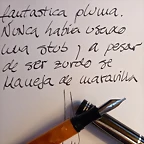 fantastica pluma.
Nunca había usado
una stub y a pesar
de ser zurdo se
maneja de maravilla